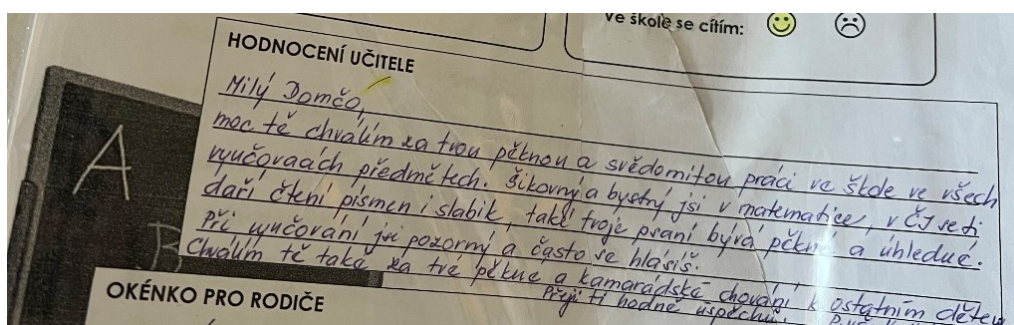 Ve škole se cítím:
HODNOCENÍ UČITELE
Milý Domčo,
moc tě chválím za tvou pěknou a svědomitou práci ve škole ve všech
vyučovacích předmětech. Šikovný a bystrý jsi v matematice, v ČJ se ti
daří čtení písmen i slabik, také tvoje psaní bývá pěkné a úhledné.
Při vyučování jsi pozorný a často se hlásíš.
Chválím tě také za tvé pěkné a kamarádské chování k ostatním dětem
Přeji ti hodně úspěchů.
A
B
OKÉNKO PRO RODIČE